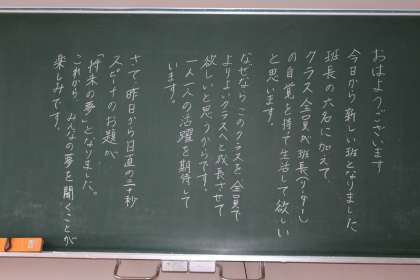 おはようございます
今日から新しい班となりました
班長の六名に加えて、
クラス全員が班長(リーダー)
の自覚を持て生活して欲しい
と思います。
なぜならこのクラスを全員で
よりよいクラスへと成長させて
欲しいと思うからです。
一人一人の活躍を期待して
います。
さて、昨日から日直の三十秒
スピーチのお題が
「将来の夢」となりました。
これから、みんなの夢を聞くことが
楽しみです。